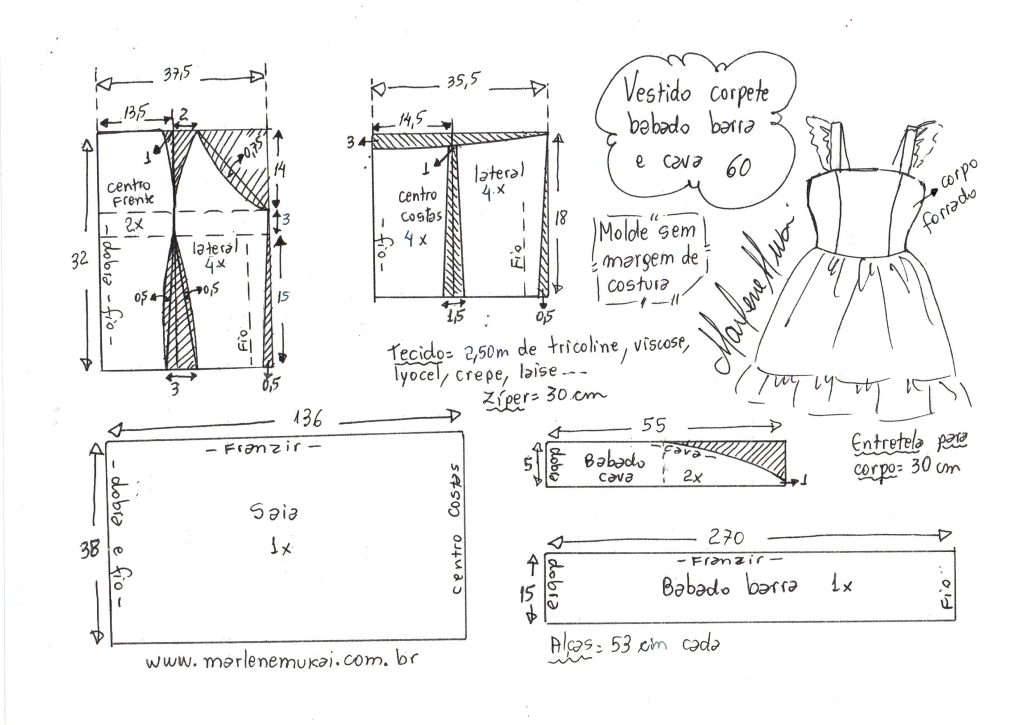 37,5
13,5
2
1
0,75
14
centro
Frente
2x
3
32
- dobra - fio -
lateral
4x
0,5
0,5
15
Fio
3
0,5
35,5
14,5
3
1
lateral
4x
centro
costas
4x
- fio -
Fio
18
1,5
0,5
Vestido corpete
babado barra
e cava 60
Molde sem
margem de
costura
Marlene Mukai.
corpo
forrado
Tecido= 2,50m de tricoline, viscose,
lyocel, crepe, laise ---
Zíper= 30 cm
136
- Franzir -
38
- dobra e fio -
Saia
1x
centro costas
55
5
dobra
Babado
cava
- cava -
2x
1
Entretela para
corpo= 30 cm
270
- Franzir -
15
dobra
Babado barra 1x
Fio
Alças= 53 cm cada
www.marlenemukai.com.br